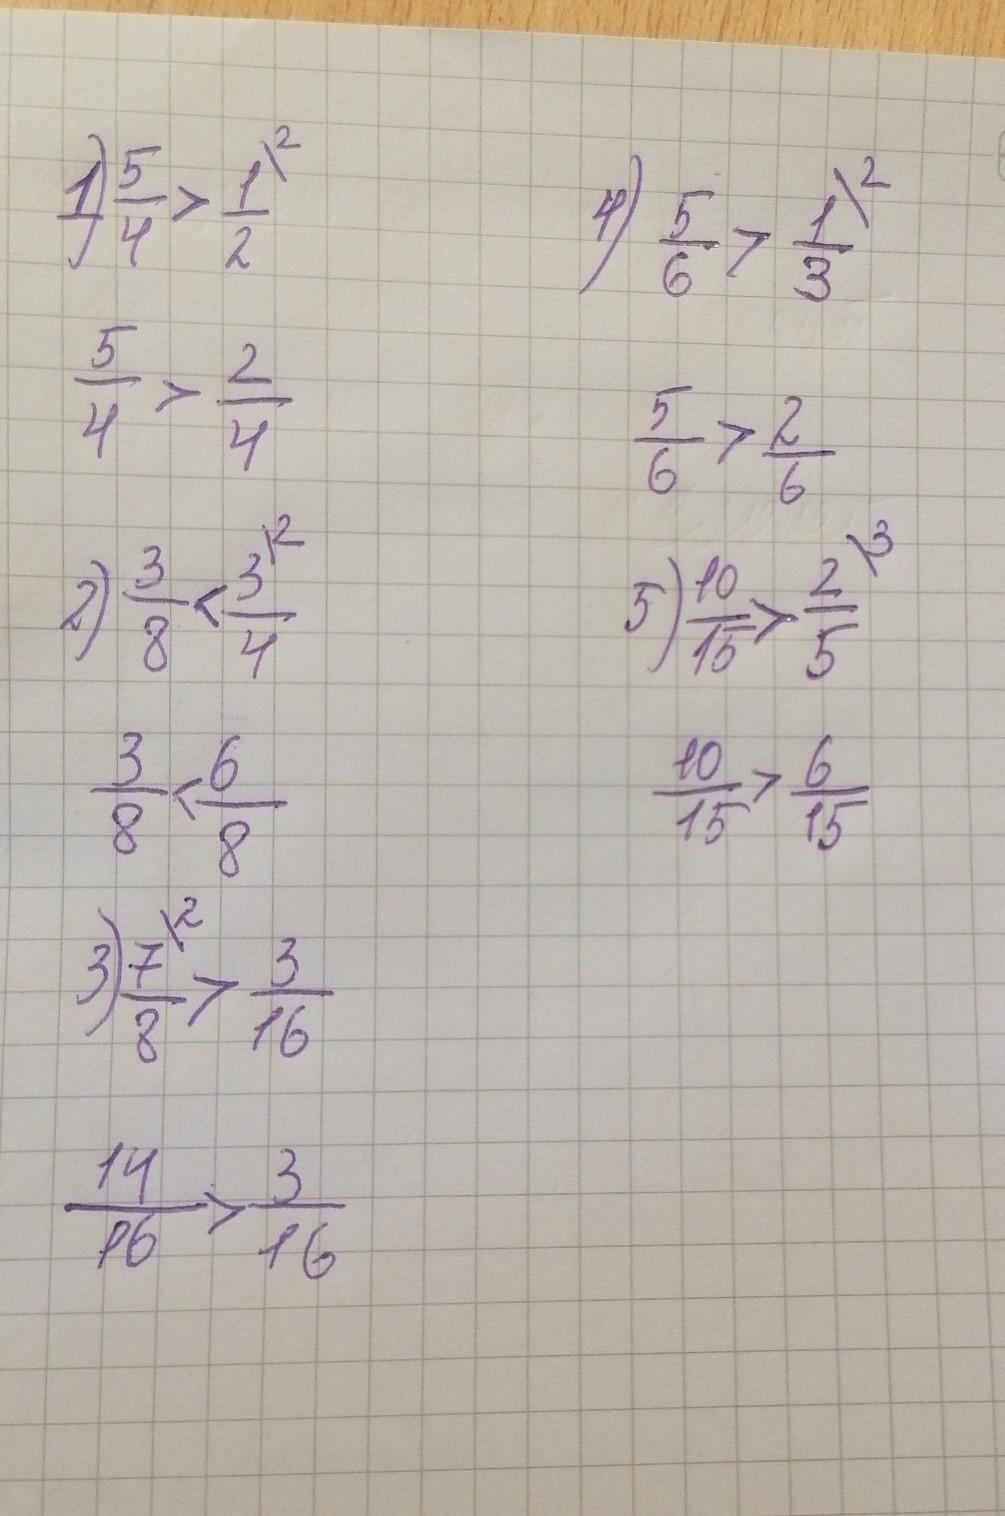 1) 5/4 > 1\2/2
5/4 > 2/4
2) 3/8 < 3\2/4
3/8 < 6/8
3) 7\2/8 > 3/16
14/16 > 3/16
4) 5/6 > 1\2/3
5/6 > 2/6
5) 10/15 > 2\3/5
10/15 > 6/15